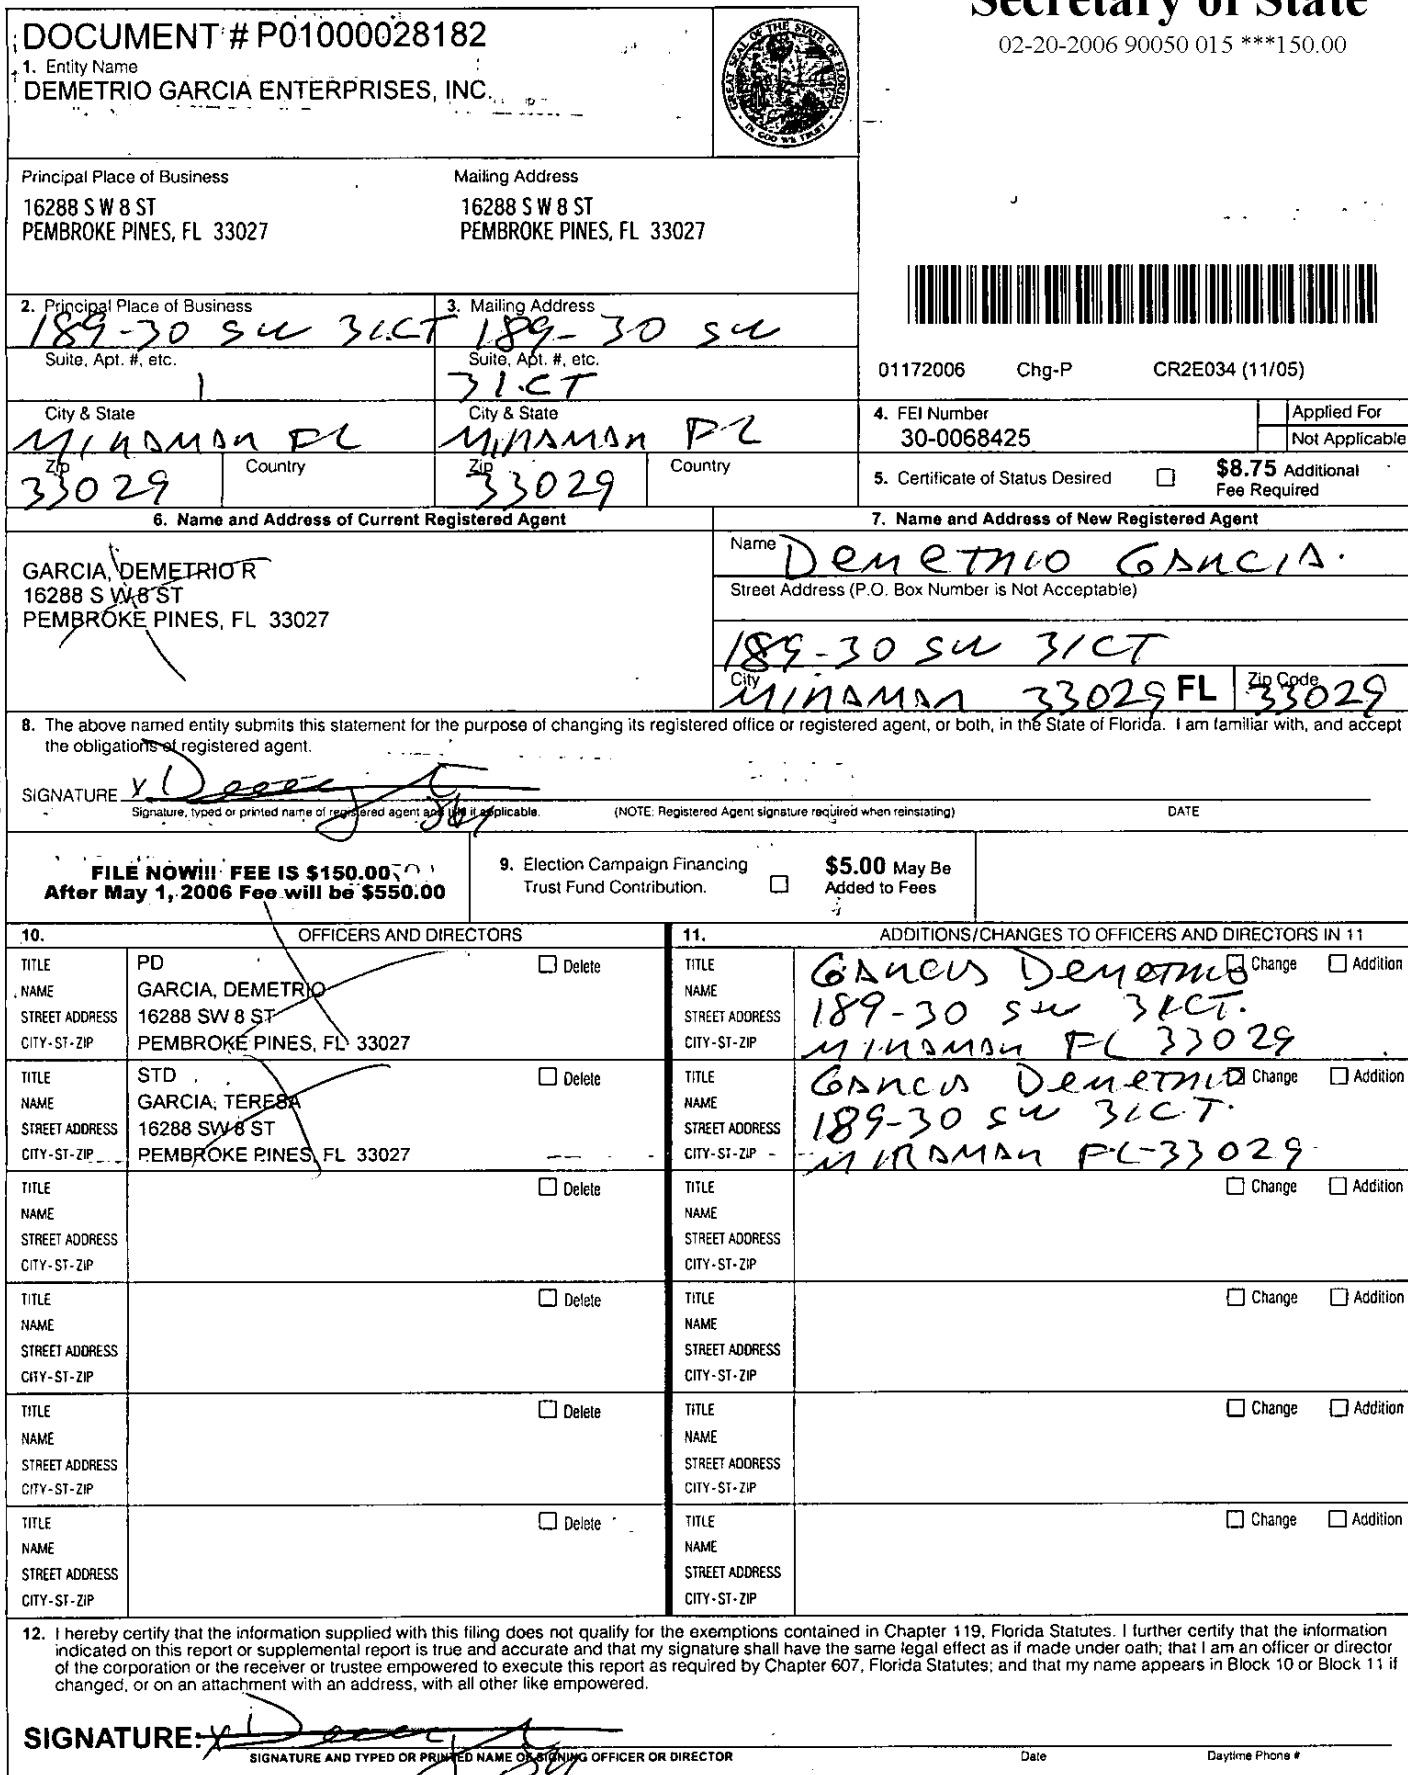 Secretary of State
02-20-2006 90050 015 ***150.00
DOCUMENT # P01000028182
1. Entity Name
DEMETRIO GARCIA ENTERPRISES, INC.
GREAT SEAL OF THE STATE OF FLORIDA
IN GOD WE TRUST
Principal Place of Business
16288 S W 8 ST
PEMBROKE PINES, FL 33027
Mailing Address
16288 S W 8 ST
PEMBROKE PINES, FL 33027
2. Principal Place of Business
189-30 SW 31CT
Suite, Apt. #, etc.
1
City & State
MIRAMAR FL
Zip
33029
Country
3. Mailing Address
189-30 SW
Suite, Apt. #, etc.
31.CT
City & State
MIRAMAR FL
Zip
33029
Country
01172006 Chg-P CR2E034 (11/05)
4. FEI Number
30-0068425
Applied For
Not Applicable
5. Certificate of Status Desired
$8.75 Additional
Fee Required
6. Name and Address of Current Registered Agent
GARCIA, DEMETRIO R
16288 S W 8 ST
PEMBROKE PINES, FL 33027
7. Name and Address of New Registered Agent
Name DEMETRIO GARCIA.
Street Address (P.O. Box Number is Not Acceptable)
189-30 SW 31CT
City MIRAMAR 33029 FL Zip Code 33029
8. The above named entity submits this statement for the purpose of changing its registered office or registered agent, or both, in the State of Florida. I am familiar with, and accept
the obligations of registered agent.
SIGNATURE X
Signature, typed or printed name of registered agent and title if applicable. (NOTE: Registered Agent signature required when reinstating) DATE
FILE NOW!!! FEE IS $150.00
After May 1, 2006 Fee will be $550.00
9. Election Campaign Financing
Trust Fund Contribution.
$5.00 May Be
Added to Fees
10. OFFICERS AND DIRECTORS
TITLE PD Delete
NAME GARCIA, DEMETRIO
STREET ADDRESS 16288 SW 8 ST
CITY-ST-ZIP PEMBROKE PINES, FL 33027
TITLE STD Delete
NAME GARCIA, TERESA
STREET ADDRESS 16288 SW 8 ST
CITY-ST-ZIP PEMBROKE PINES, FL 33027
TITLE Delete
NAME
STREET ADDRESS
CITY-ST-ZIP
TITLE Delete
NAME
STREET ADDRESS
CITY-ST-ZIP
TITLE Delete
NAME
STREET ADDRESS
CITY-ST-ZIP
TITLE Delete
NAME
STREET ADDRESS
CITY-ST-ZIP
11. ADDITIONS/CHANGES TO OFFICERS AND DIRECTORS IN 11
TITLE GARCIA DEMETRIO Change Addition
NAME
STREET ADDRESS 189-30 SW 31CT.
CITY-ST-ZIP MIRAMAR FL 33029
TITLE GARCIA DEMETRIO Change Addition
NAME
STREET ADDRESS 189-30 SW 31C.T.
CITY-ST-ZIP MIRAMAR FL-33029
TITLE Change Addition
NAME
STREET ADDRESS
CITY-ST-ZIP
TITLE Change Addition
NAME
STREET ADDRESS
CITY-ST-ZIP
TITLE Change Addition
NAME
STREET ADDRESS
CITY-ST-ZIP
TITLE Change Addition
NAME
STREET ADDRESS
CITY-ST-ZIP
12. I hereby certify that the information supplied with this filing does not qualify for the exemptions contained in Chapter 119, Florida Statutes. I further certify that the information
indicated on this report or supplemental report is true and accurate and that my signature shall have the same legal effect as if made under oath; that I am an officer or director
of the corporation or the receiver or trustee empowered to execute this report as required by Chapter 607, Florida Statutes; and that my name appears in Block 10 or Block 11 if
changed, or on an attachment with an address, with all other like empowered.
SIGNATURE: X
SIGNATURE AND TYPED OR PRINTED NAME OF SIGNING OFFICER OR DIRECTOR Date Daytime Phone #